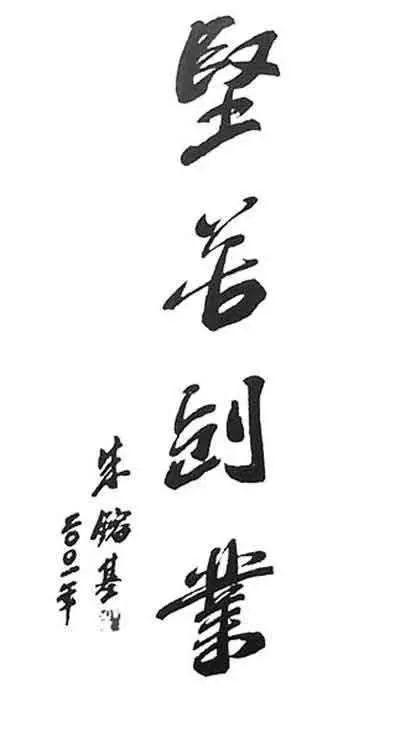 堅苦創業
朱鎔基
二〇〇一年